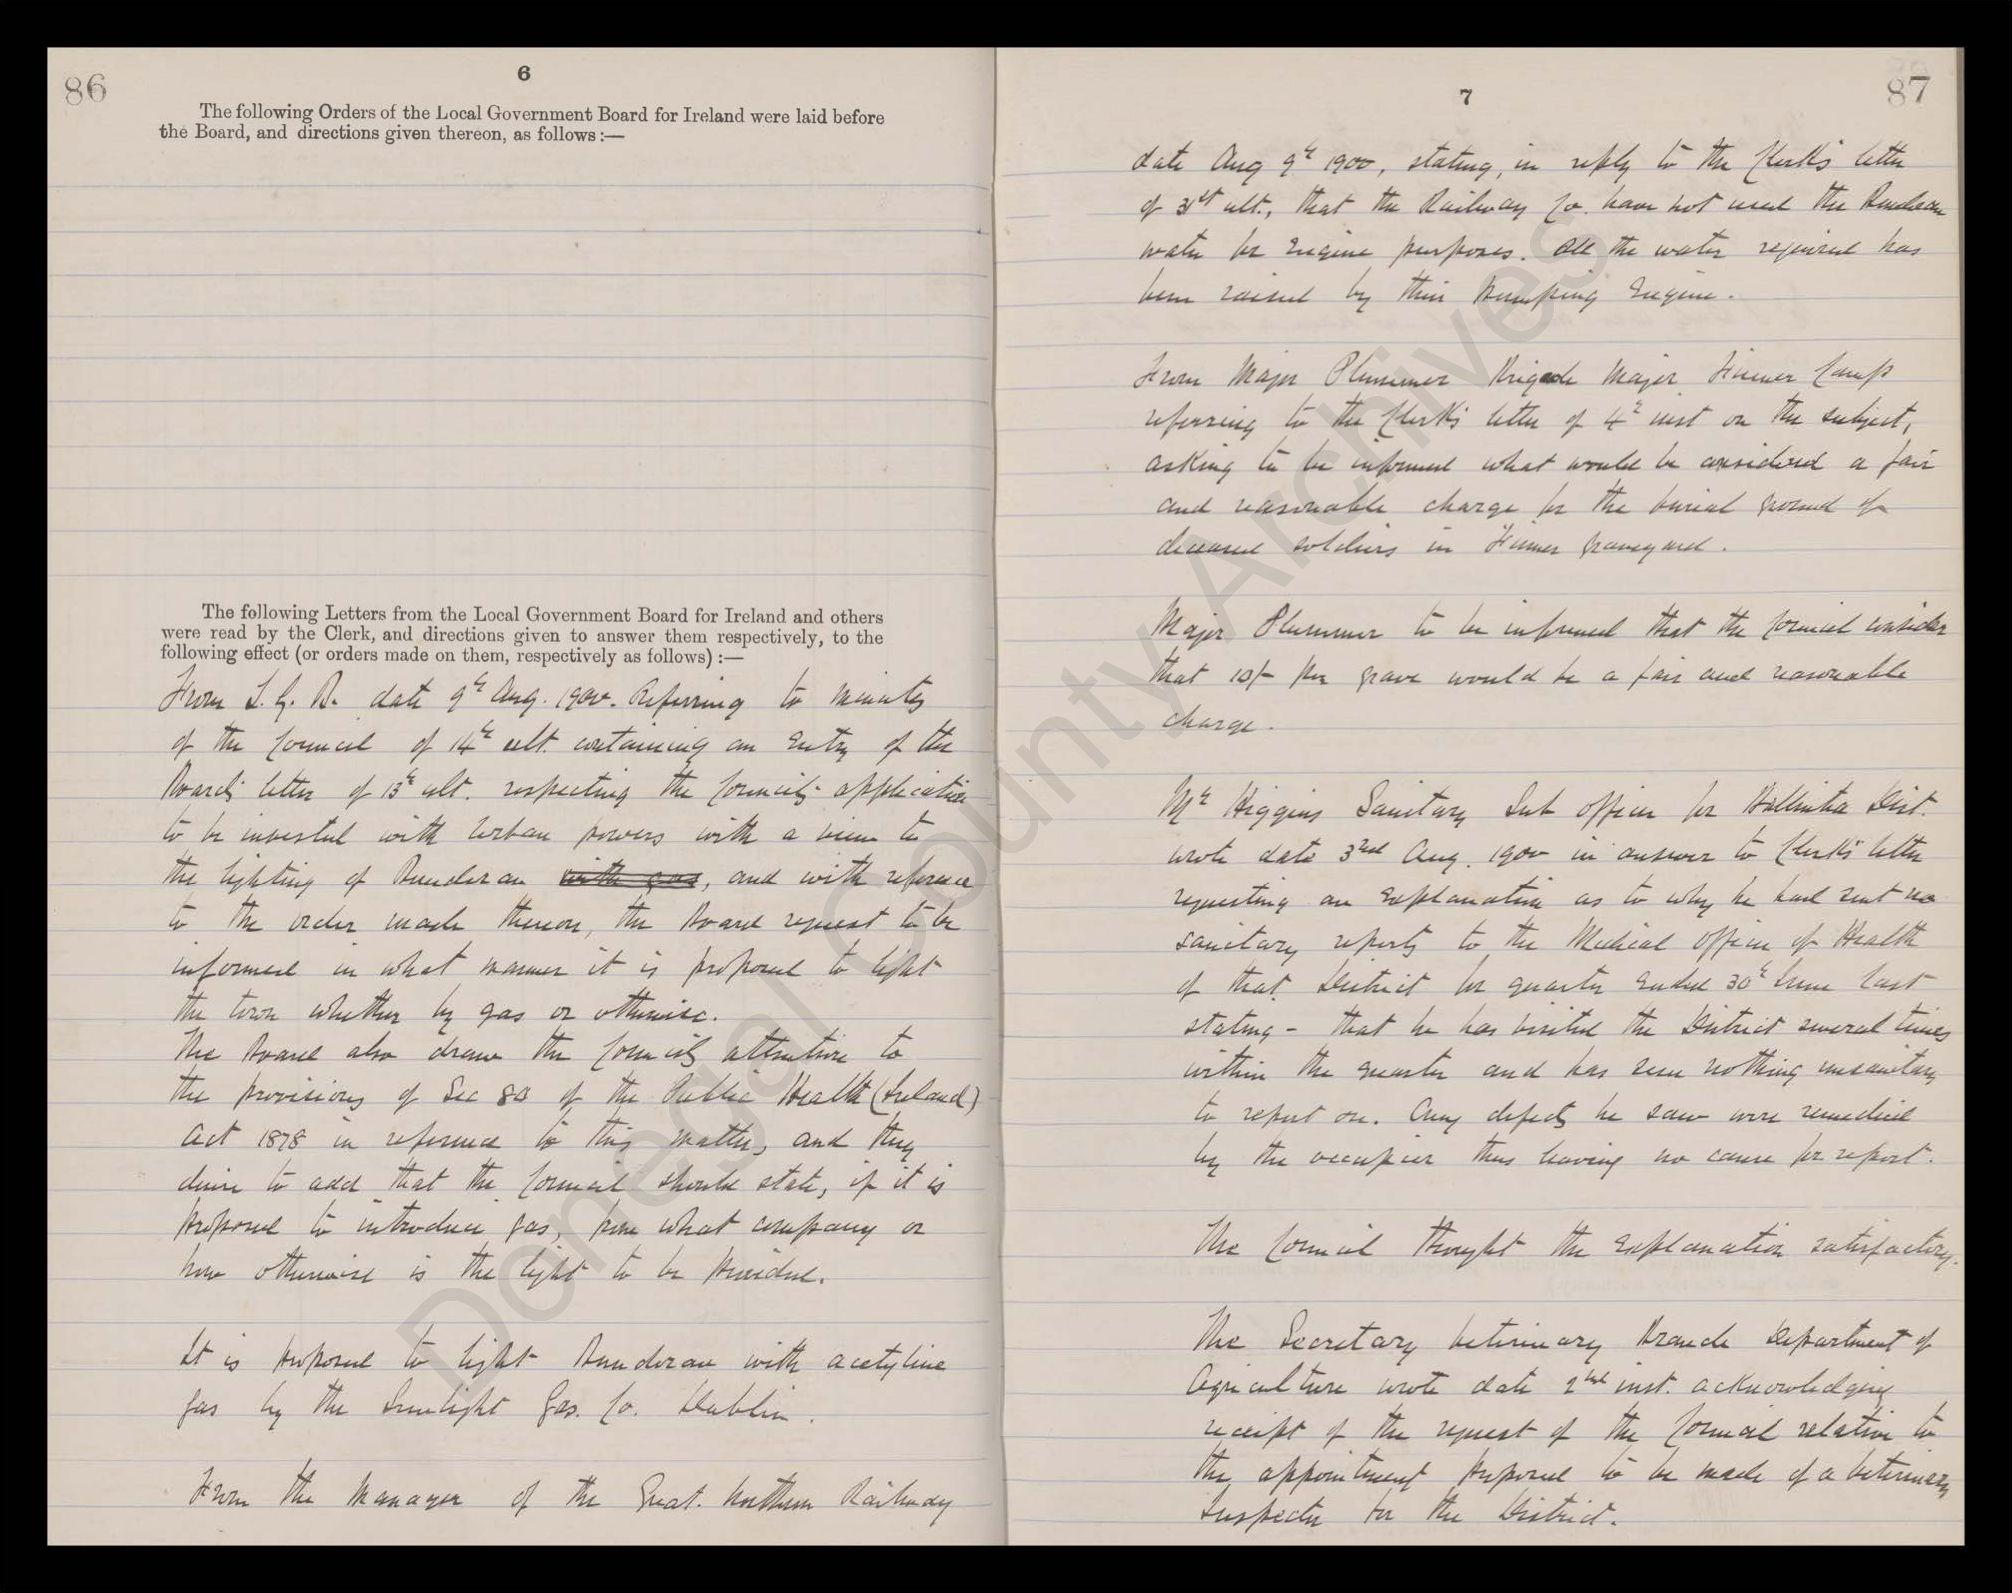 86
6
The following Orders of the Local Government Board for Ireland were laid before
the Board, and directions given thereon, as follows :—
The following Letters from the Local Government Board for Ireland and others
were read by the Clerk, and directions given to answer them respectively, to the
following effect (or orders made on them, respectively as follows) :—
From L. G. B. date 9th Aug. 1900. Referring to minutes
of the Council of 14th ult. containing an Entry of the
Board's letter of 13th ult. respecting the Council's application
to be invested with Urban powers with a view to
the lighting of Bundoran with gas, and with reference
to the order made thereon, the Board request to be
informed in what manner it is proposed to light
the town whether by gas or otherwise.
The Board also draw the Council's attention to
the provisions of Sec 80 of the Public Health (Ireland)
Act 1878 in reference to this matter, and they
desire to add that the Council should state, if it is
proposed to introduce gas, from what company or
how otherwise is the light to be provided.
It is proposed to light Bundoran with acetyline
gas by the Sunlight Gas. Co. Dublin.
From the Manager of the Great. Northern Railway
7
87
date Aug 9th 1900, stating, in reply to the Clerk's letter
of 31st ult., that the Railway Co. have not used the Bundoran
water for Engine purposes. All the water required has
been raised by their Pumping Engine.
From Major Plummer Brigade Major Finner Camp
referring to the Clerk's letter of 4th inst on the subject,
asking to be informed what would be considered a fair
and reasonable charge for the burial ground of
deceased soldiers in Finner graveyard.
Major Plummer to be informed that the Council consider
that 10/- per grave would be a fair and reasonable
charge.
Mr Higgins Sanitary Sub officer for Ballintra Dist.
wrote date 3rd Aug. 1900 in answer to Clerk's letter
requesting an Explanation as to why he had sent no
sanitary reports to the Medical Officer of Health
of that District for quarter Ended 30th June last
stating - that he has visited the District several times
within the quarter and has seen nothing unsanitary
to report on. Any defects he saw were remedied
by the occupier thus leaving no cause for report.
The Council thought the Explanation satisfactory.
The Secretary Veterinary Branch Department of
Agriculture wrote date 2nd inst. acknowledging
receipt of the request of the Council relative to
the appointment proposed to be made of a Veterinary
Inspector for the District.
Donegal County Archives